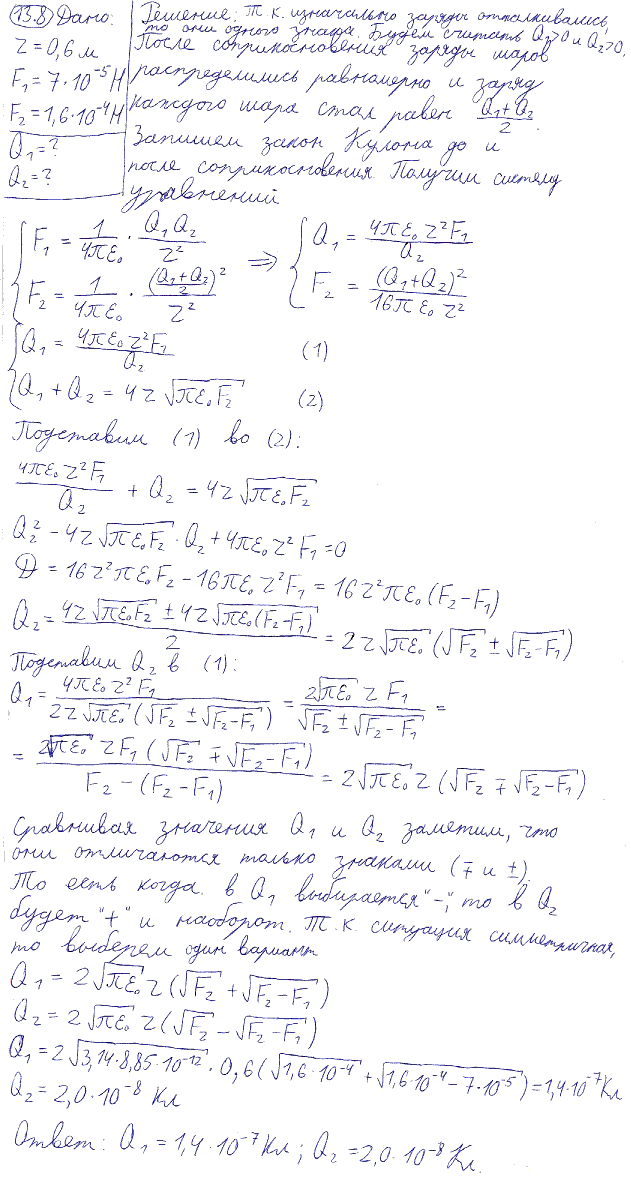 13.8 Дано:
r = 0,6 м
F₁ = 7·10⁻⁵ Н
F₂ = 1,6·10⁻⁴ Н
Q₁ = ?
Q₂ = ?
Решение: Т.к. изначально заряды отталкивались,
то они одного знака. Будем считать Q₁>0 и Q₂>0.
После соприкосновения заряды шаров
распределились равномерно и заряд
каждого шара стал равен (Q₁+Q₂)/2.
Запишем закон Кулона до и
после соприкосновения. Получим систему
уравнений
{ F₁ = 1/(4πε₀) · Q₁Q₂/r² ⇒ { Q₁ = 4πε₀r²F₁/Q₂
{ F₂ = 1/(4πε₀) · ((Q₁+Q₂)/2)²/r² { F₂ = (Q₁+Q₂)²/(16πε₀r²)
{ Q₁ = 4πε₀r²F₁/Q₂ (1)
{ Q₁ + Q₂ = 4r√(πε₀F₂) (2)
Подставим (1) во (2):
4πε₀r²F₁/Q₂ + Q₂ = 4r√(πε₀F₂)
Q₂² − 4r√(πε₀F₂)·Q₂ + 4πε₀r²F₁ = 0
D = 16r²πε₀F₂ − 16πε₀r²F₁ = 16r²πε₀(F₂−F₁)
Q₂ = (4r√(πε₀F₂) ± 4r√(πε₀(F₂−F₁)))/2 = 2r√(πε₀)(√F₂ ± √(F₂−F₁))
Подставим Q₂ в (1):
Q₁ = 4πε₀r²F₁/(2r√(πε₀)(√F₂ ± √(F₂−F₁))) = 2√(πε₀) r F₁/(√F₂ ± √(F₂−F₁)) =
= 2√(πε₀) r F₁(√F₂ ∓ √(F₂−F₁))/(F₂ − (F₂−F₁)) = 2√(πε₀) r (√F₂ ∓ √(F₂−F₁))
Сравнивая значения Q₁ и Q₂ заметим, что
они отличаются только знаками (∓ и ±).
То есть когда в Q₁ выбирается "−", то в Q₂
будет "+" и наоборот. Т.к. ситуация симметричная,
то выберем один вариант
Q₁ = 2√(πε₀) r (√F₂ + √(F₂−F₁))
Q₂ = 2√(πε₀) r (√F₂ − √(F₂−F₁))
Q₁ = 2√(3,14·8,85·10⁻¹²)·0,6(√(1,6·10⁻⁴) + √(1,6·10⁻⁴−7·10⁻⁵)) = 1,4·10⁻⁷ Кл
Q₂ = 2,0·10⁻⁸ Кл
Ответ: Q₁ = 1,4·10⁻⁷ Кл; Q₂ = 2,0·10⁻⁸ Кл.